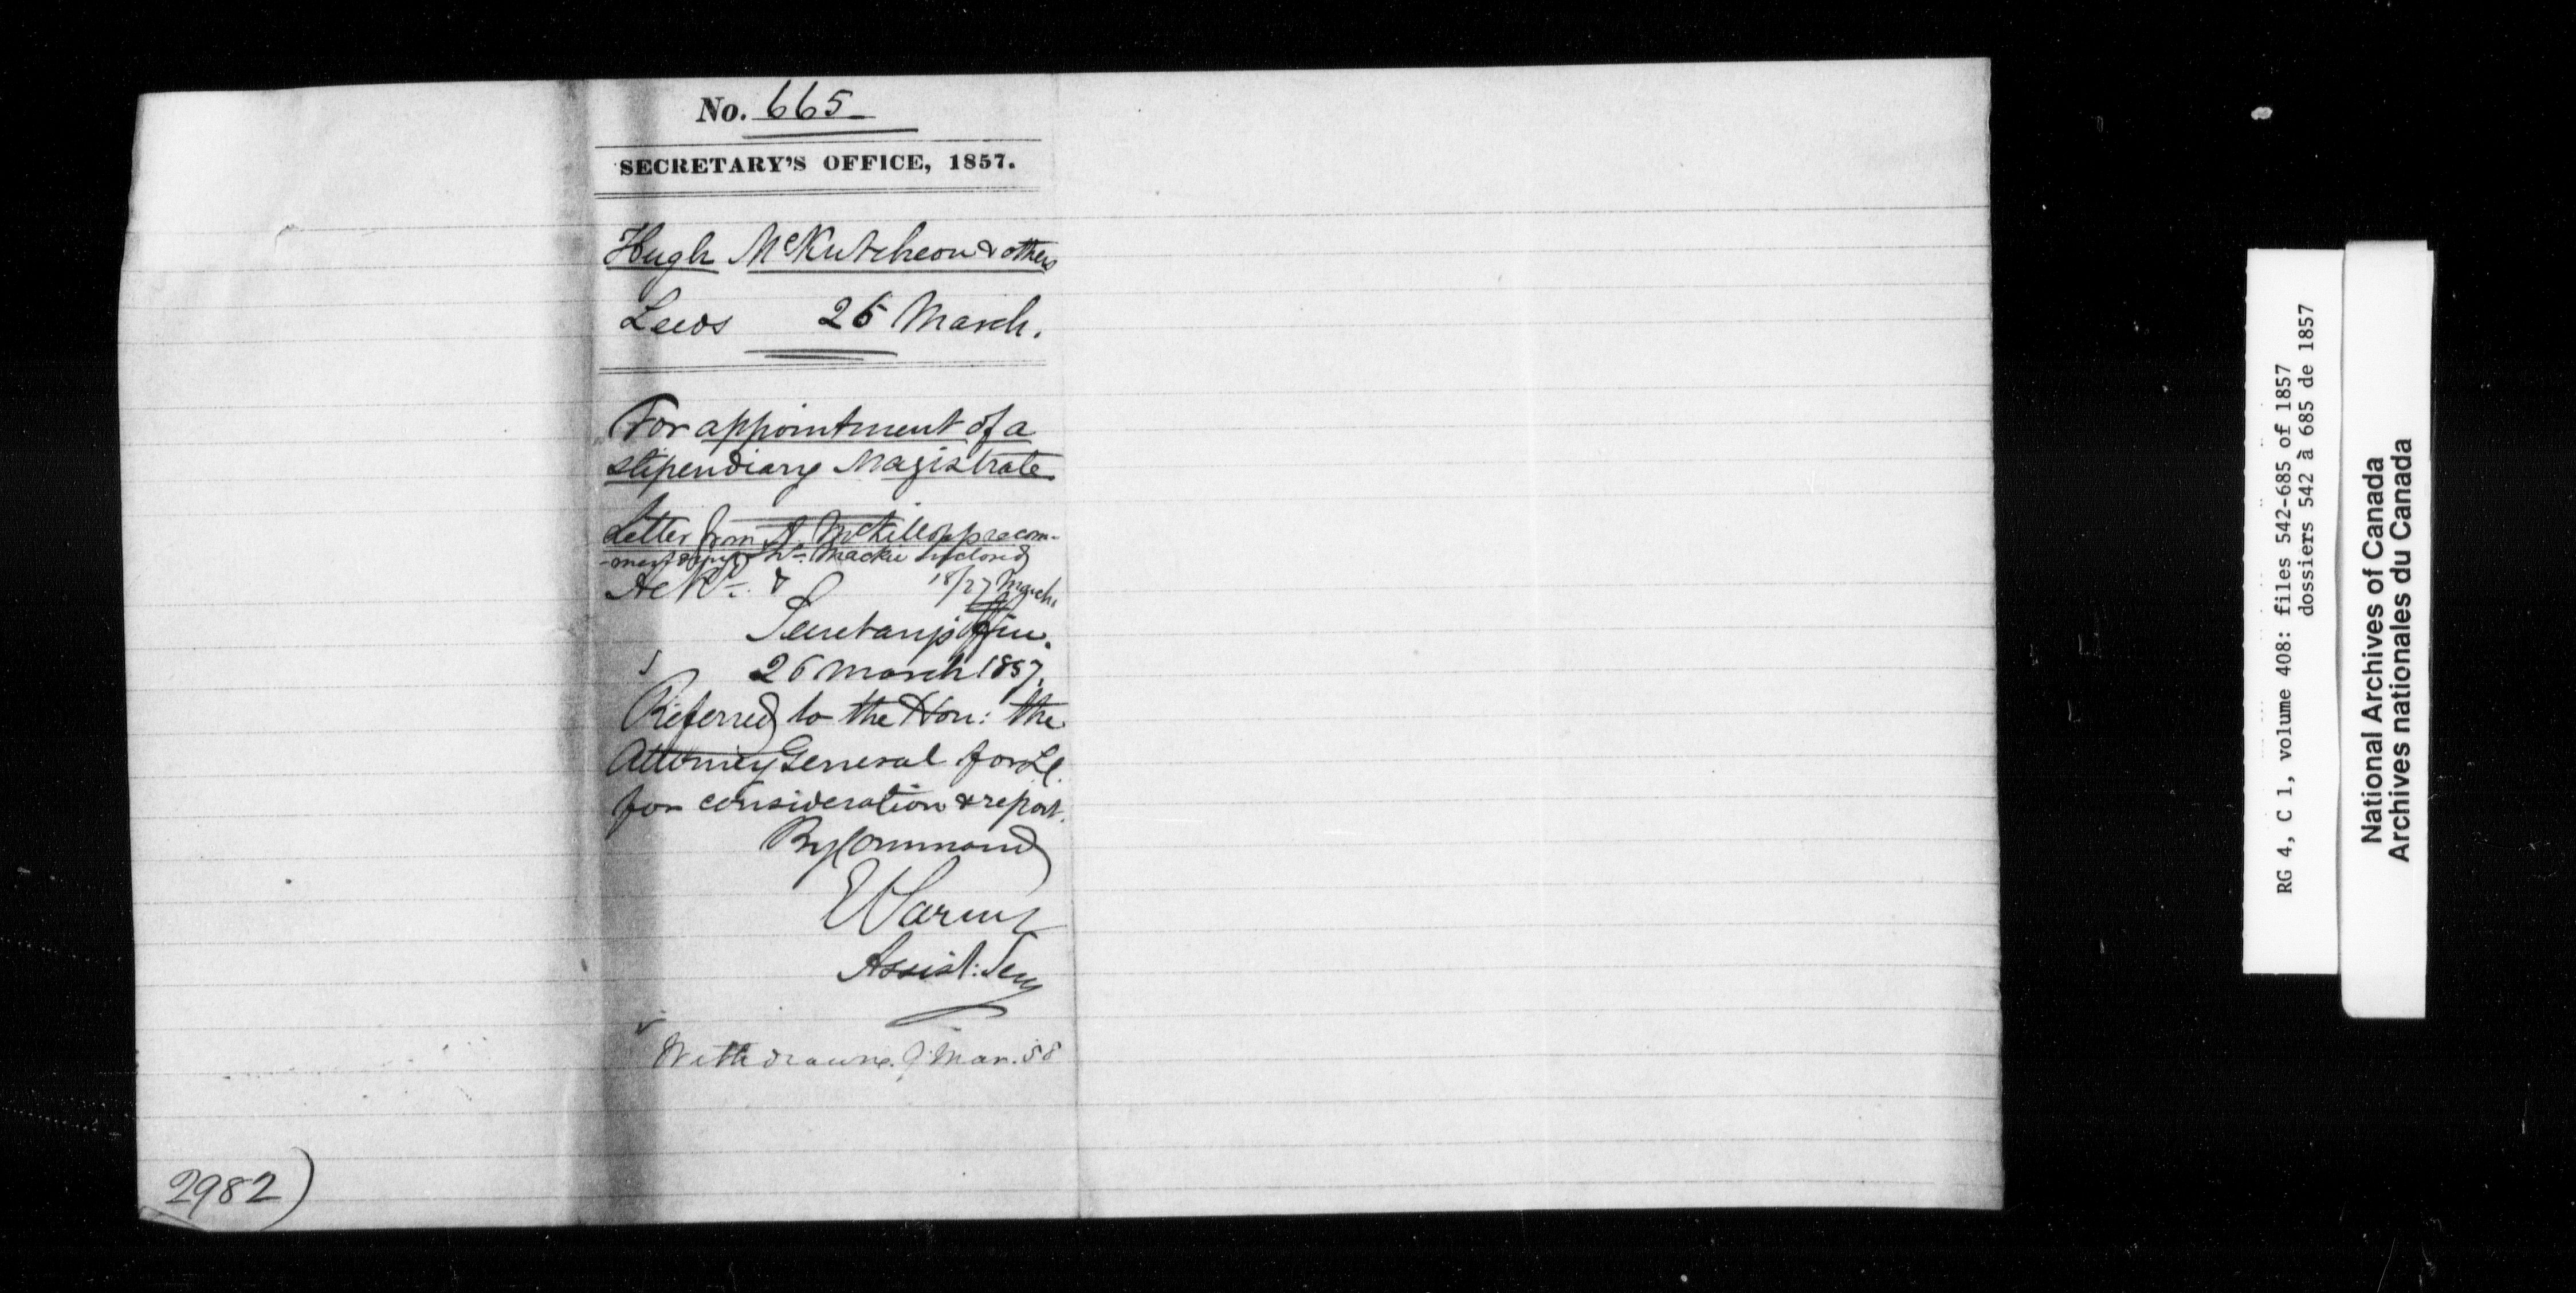 No. 665
SECRETARY'S OFFICE, 1857.
Hugh McKutcheon & others
Leeds 25 March.
For appointment of a
stipendiary Magistrate
Letter from A McKillop recom-
-mending Wm Mackie inclosed
Ackd. 27 March
Secretary's Office.
26 March 1857.
Referred to the Hon: the
Attorney General for L.C.
for consideration & report.
By Command
Assist: Secy
Withdrawn. 9 Mar. 58
2982)
RG 4, C 1, volume 408: files 542-685 of 1857
dossiers 542 à 685 de 1857
National Archives of Canada
Archives nationales du Canada